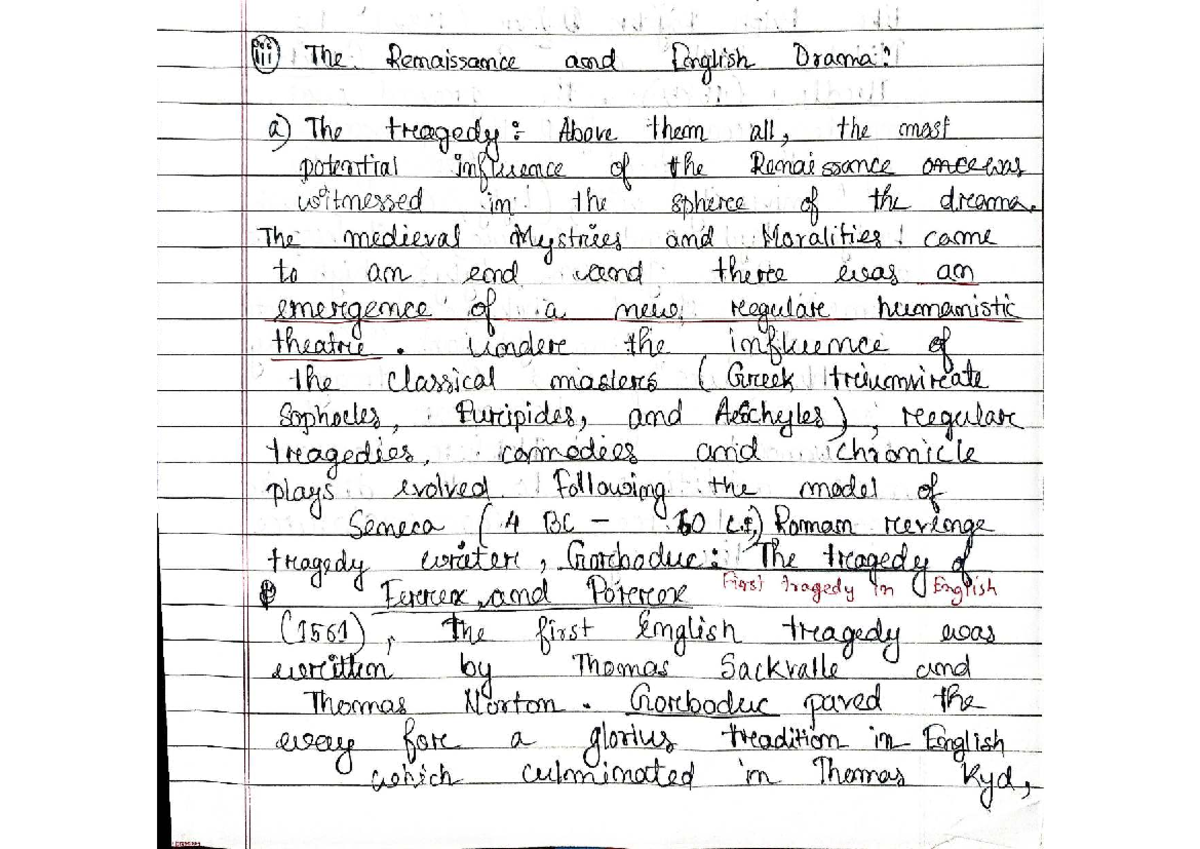 iii The Renaissance and English Drama:
a) The tragedy: Above them all, the most
potential influence of the Renaissance was
witnessed in the sphere of the drama.
The medieval Mystries and Moralities came
to an end and there was an
emergence of a new, regular humanistic
theatre. Under the influence of
the Classical masters (Greek triumvirate
Sophocles, Euripides, and Aeschyles), regular
tragedies, comedies and chronicle
plays evolved. Following the model of
Seneca (4 BC - 60 C.E) Roman revenge
tragedy writer, Gorboduc: The tragedy of
Ferrex, and Porrex First tragedy in English
(1561), The first English tragedy was
written by Thomas Sackvalle and
Thomas Norton. Gorboduc paved the
way for a glorius tradition in English
which culminated in Thomas Kyd,